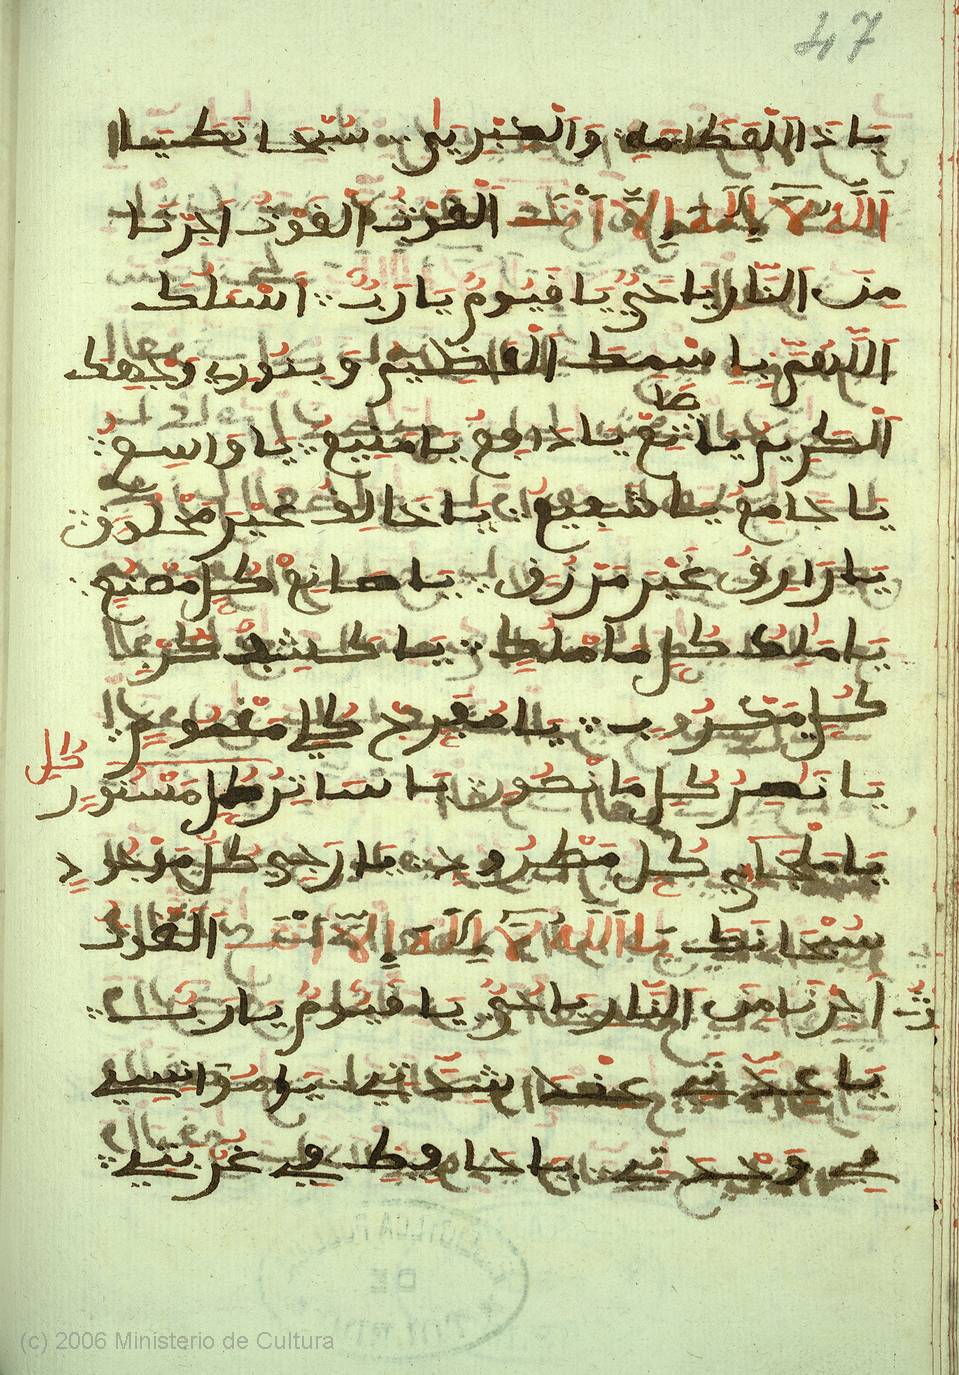 47
يا ذا العظامه والجبريلى سبحانك يا
الله لا إله إلا أنت الغوث الغوث اجرنا
من النار يا حي يا قيوم يا رب أسئلك
اللهم يا سمك العظيم وبنور وجهك
الكريم يا مانع يا دافع يا منيع يا واسع
يا جامع يا شفيع يا خالق غير مخلوق
يا رازق غير مرزوق يا صانع كل مصنوع
يا ملك كل ما ملك يا كاشف كرب
كل مكروب يا مفرج كل مغموم
كل
يا ناصر كل منصور يا ساتر كل مستور
يا ملجاء كل مطرود يا رجي كل مرجو
سبحانك يا الله لا إله إلا أنت الغوث
أجرنا من النار يا حي يا قيوم يا رب
يا عدتي عند شدتي يا مؤانسي
في وحدتي يا حافظي في غربتي
(c) 2006 Ministerio de Cultura